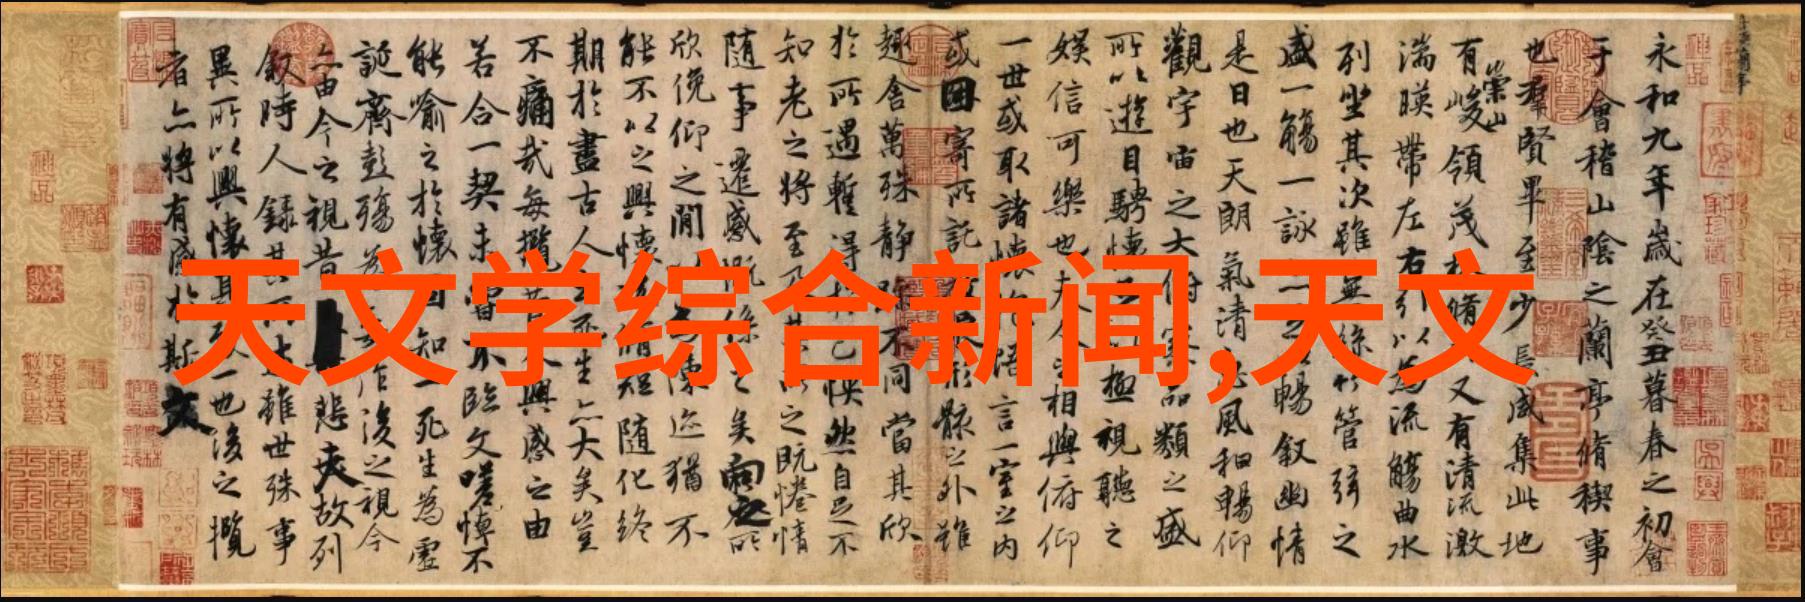 天文学综合新闻,天文
永和九年歲在癸丑暮春之初會
于會稽山陰之蘭亭脩稧事
也羣賢畢至少長咸集此地
有崇山峻領茂林脩竹又有清流激
湍暎帶左右引以為流觴曲水
列坐其次雖無絲竹管弦之
盛一觴一詠亦足以暢叙幽情
是日也天朗氣清惠風和暢仰
觀宇宙之大俯察品類之盛
所以遊目騁懷足以極視聽之
娛信可樂也夫人之相與俯仰
一世或取諸懷抱悟言一室之內
或因寄所託放浪形骸之外雖
趣舍萬殊静躁不同當其欣
於所遇蹔得於己怏然自足不
知老之將至及其所之既惓情
隨事遷感慨係之矣向之所
欣俛仰之閒以為陳迹猶不
能不以之興懷況脩短隨化終
期於盡古人云死生亦大矣豈
不痛哉每攬昔人興感之由
若合一契未嘗不臨文嗟悼不
能喻之於懷固知一死生為虛
誕齊彭殤為妄作後之視今
亦由今之視昔悲夫故列
叙時人錄其所述雖世殊事
異所以興懷其致一也後之攬
者亦將有感於斯文